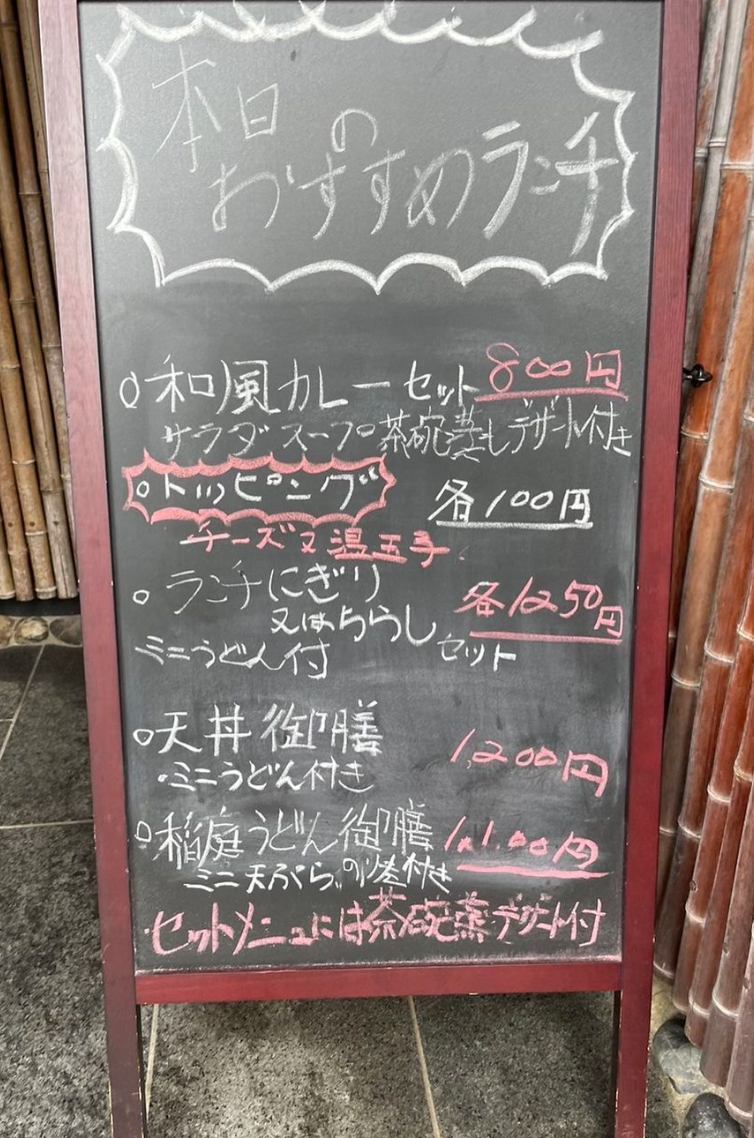 本日の
おすすめランチ
○和風カレーセット 800円
サラダ スープ 茶碗蒸し デザート付き
○トッピング 各100円
チーズ又温玉子
○ランチにぎり 各1250円
又はちらし
ミニうどん付 セット
○天丼御膳 1,200円
・ミニうどん付き
○稲庭うどん御膳 1,100円
ミニ天ぷら、付き
・セットメニューには茶碗蒸デザート付